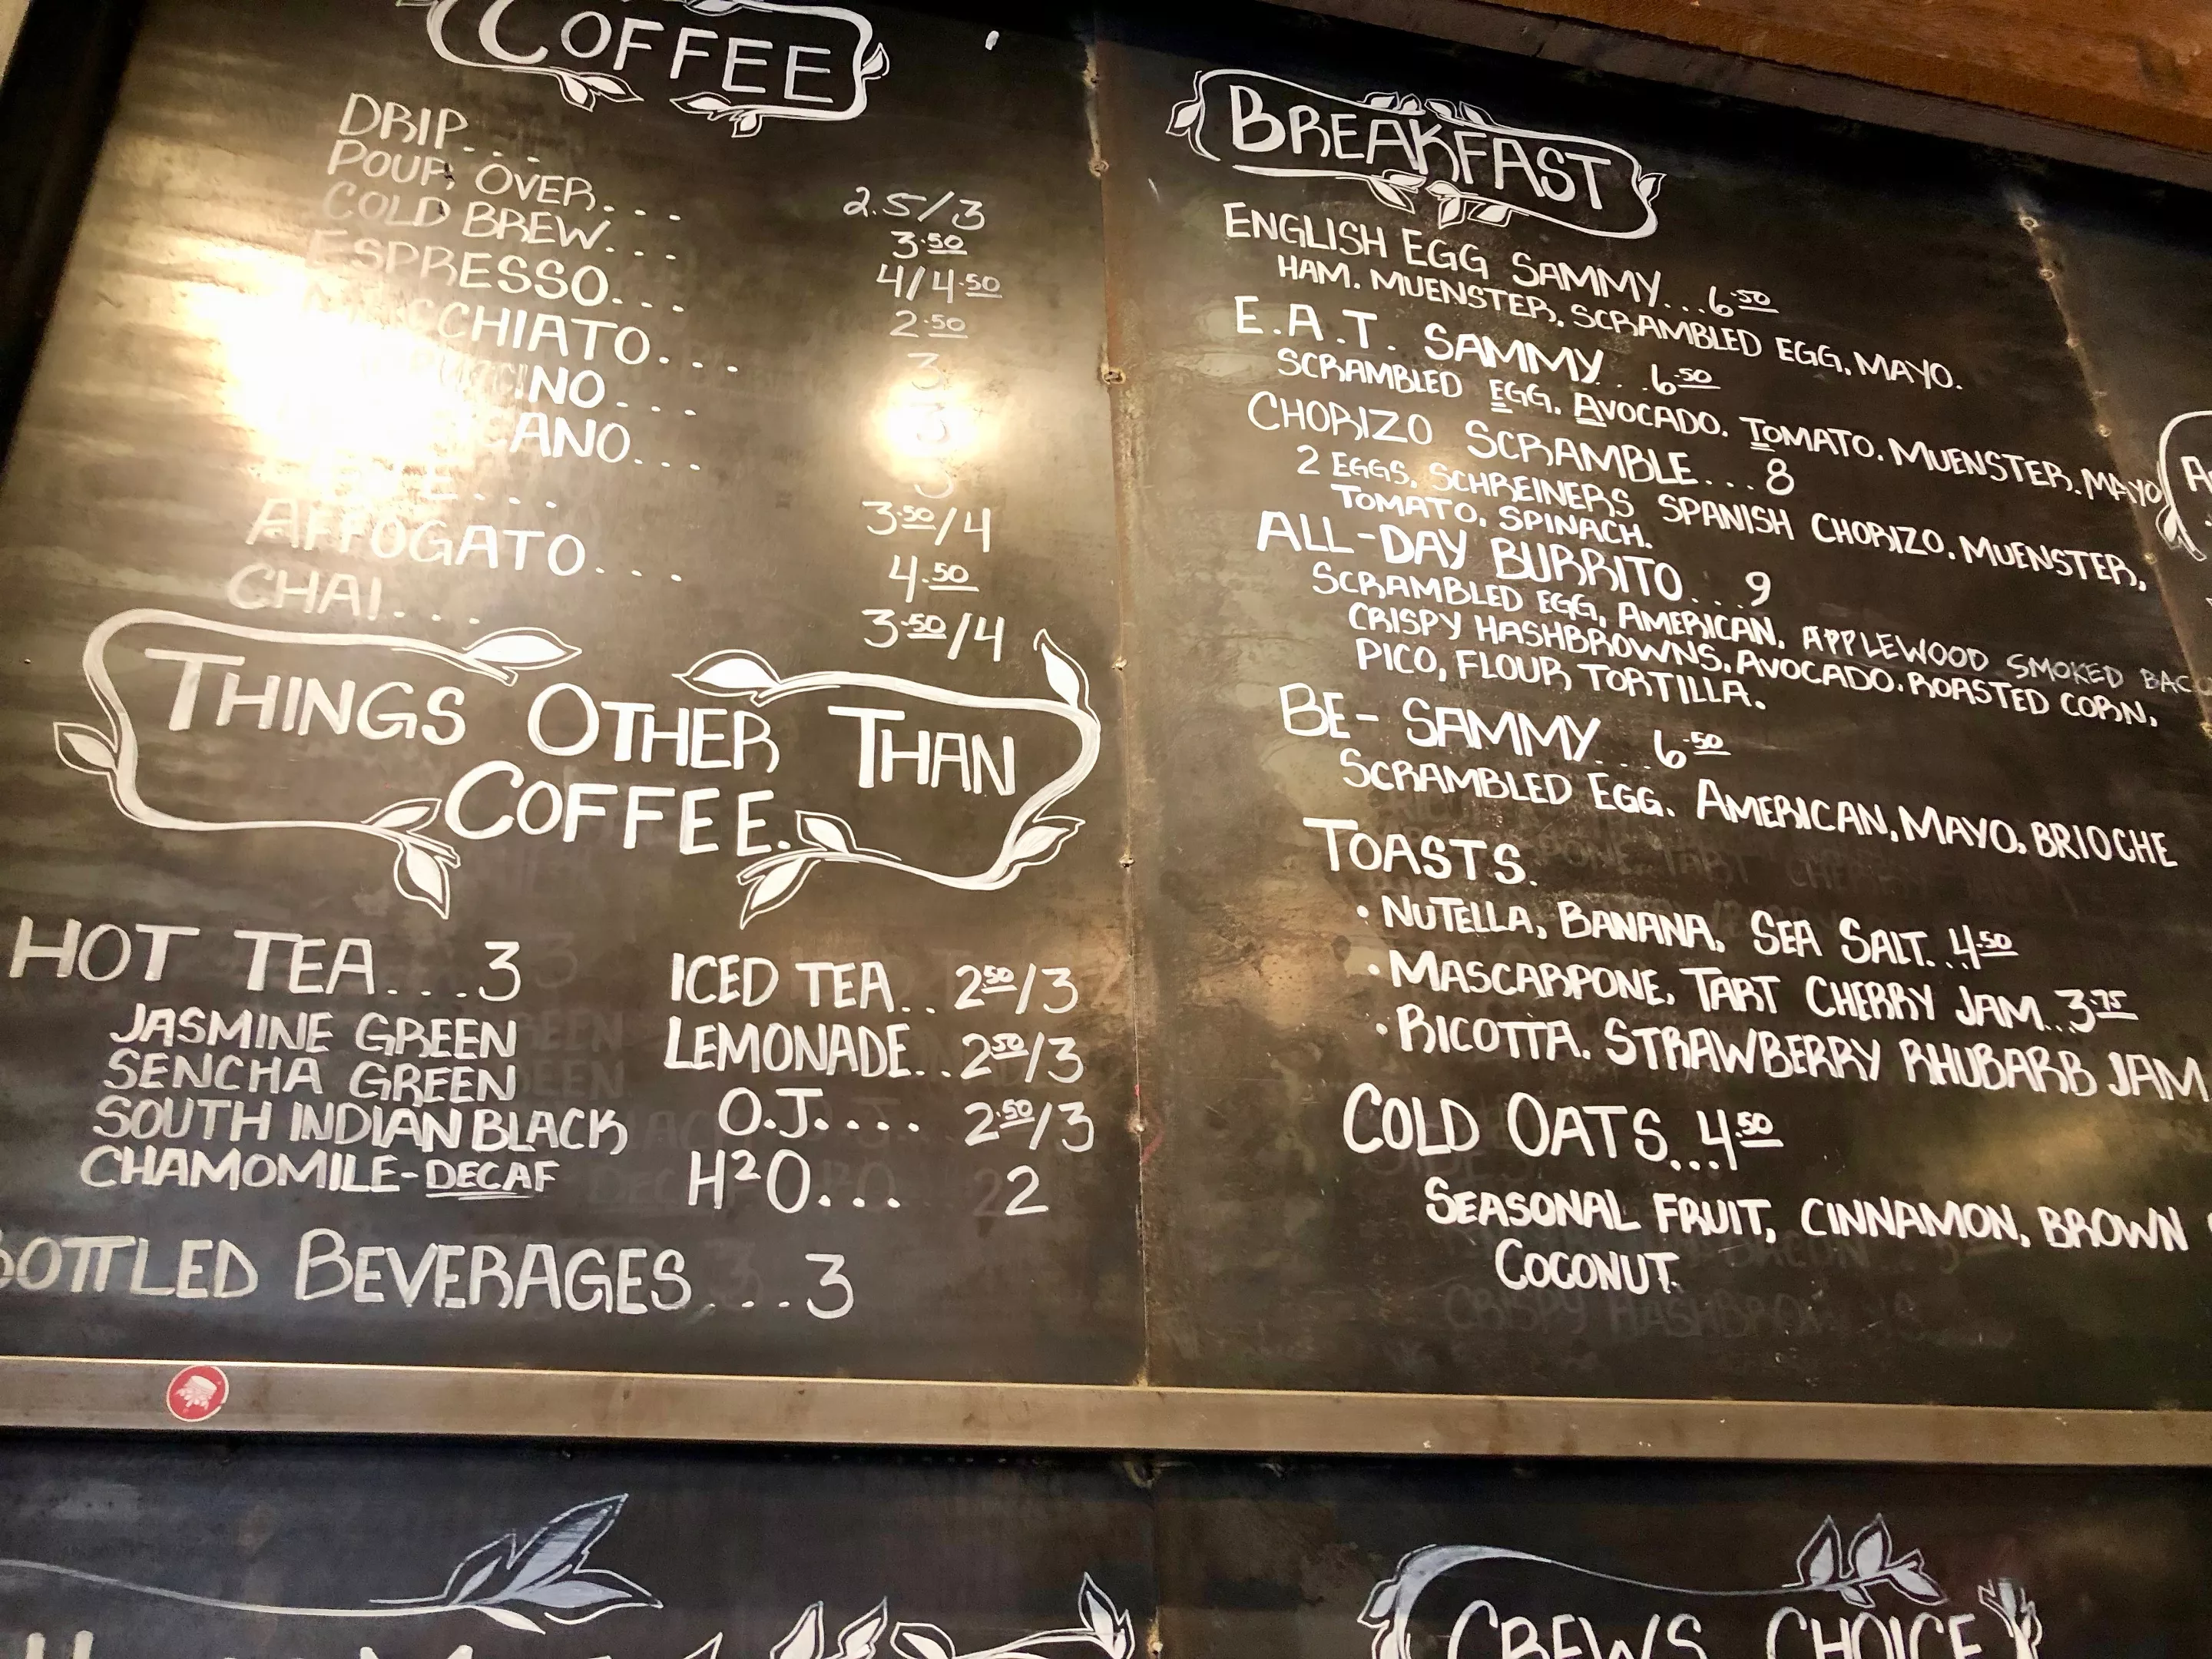 COFFEE
DRIP... 2.5/3
POUR OVER... 3.50
COLD BREW... 4/4.50
ESPRESSO... 2.50
MACCHIATO... 3
3
3
3.50/4
AFFOGATO... 4.50
CHAI... 3.50/4
THINGS OTHER THAN
COFFEE.
HOT TEA...3
JASMINE GREEN
SENCHA GREEN
SOUTH INDIAN BLACK
CHAMOMILE-DECAF
ICED TEA.. 2.50/3
LEMONADE.. 2.50/3
O.J.... 2.50/3
H2O... 2
BOTTLED BEVERAGES...3
BREAKFAST
ENGLISH EGG SAMMY...6.50
HAM. MUENSTER. SCRAMBLED EGG. MAYO.
E.A.T. SAMMY...6.50
SCRAMBLED EGG. AVOCADO. TOMATO. MUENSTER. MAYO
CHORIZO SCRAMBLE...8
2 EGGS. SCHREINERS SPANISH CHORIZO. MUENSTER,
TOMATO. SPINACH.
ALL-DAY BURRITO...9
SCRAMBLED EGG, AMERICAN, APPLEWOOD SMOKED BAC
CRISPY HASHBROWNS. AVOCADO. ROASTED CORN.
PICO, FLOUR TORTILLA.
BE- SAMMY...6.50
SCRAMBLED EGG. AMERICAN, MAYO. BRIOCHE
TOASTS.
• NUTELLA, BANANA, SEA SALT...4.50
• MASCARPONE, TART CHERRY JAM...3.75
• RICOTTA. STRAWBERRY RHUBARB JAM
COLD OATS...4.50
SEASONAL FRUIT, CINNAMON, BROWN
COCONUT.
CREWS CHOICE